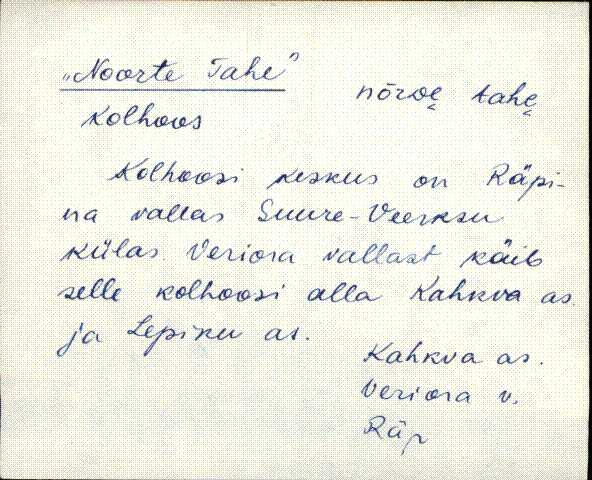 „Noorte Tahe" nõrve̬ tahe̬
Kolhoos
Kolhoosi keskus on Räpi-
na vallas Suure-Veerksu
külas. Veriora vallast käib
selle kolhoosi alla Kahkva as.
ja Lepiku as.
Kahkva as.
Veriora v.
Räp